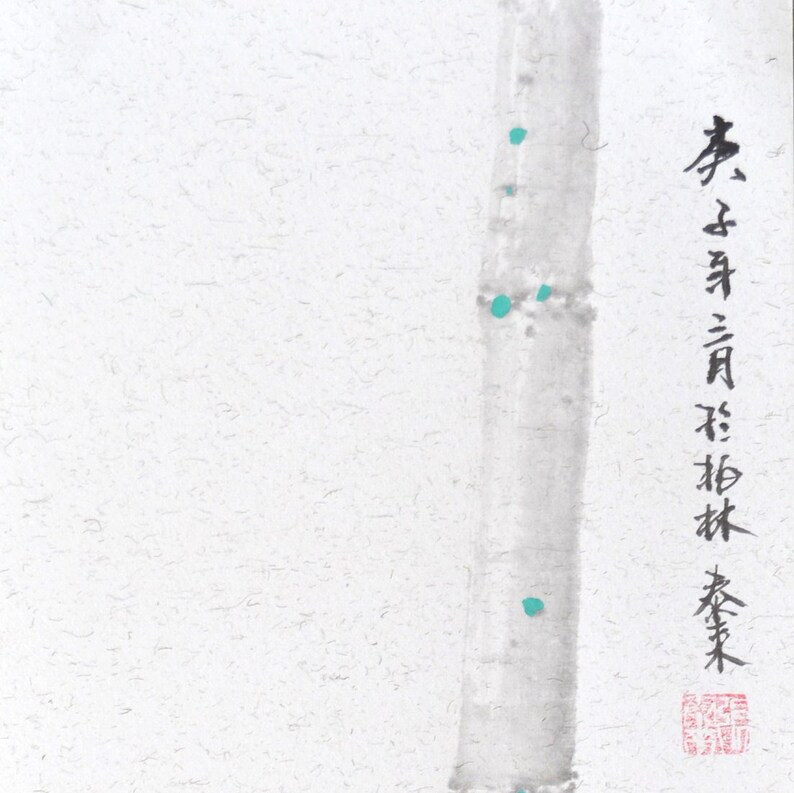 庚子年三月於柏林 泰来